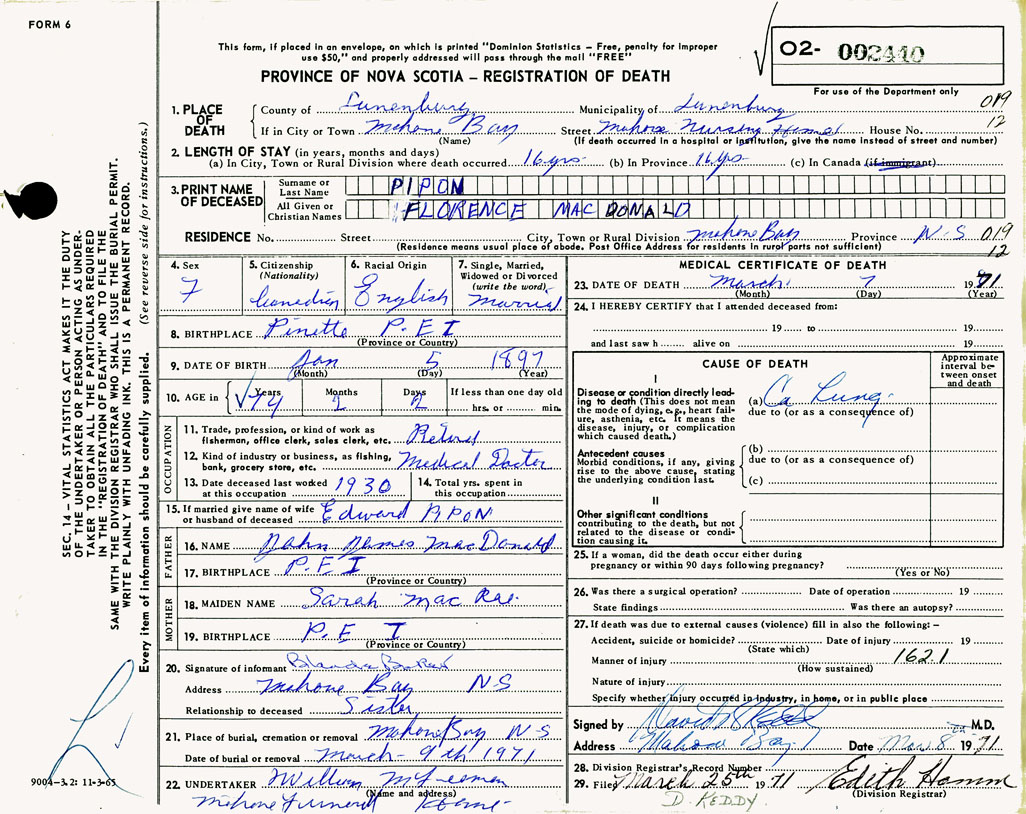 FORM 6
This form, if placed in an envelope, on which is printed "Dominion Statistics – Free, penalty for improper
use $50," and properly addressed will pass through the mail "FREE"
PROVINCE OF NOVA SCOTIA – REGISTRATION OF DEATH
02- 002440
For use of the Department only
019
12
1. PLACE OF DEATH
County of Lunenburg Municipality of Lunenburg
If in City or Town Mahone Bay Street Mahone Nursing Home House No.
(Name) (If death occurred in a hospital or institution, give the name instead of street and number)
2. LENGTH OF STAY (in years, months and days)
(a) In City, Town or Rural Division where death occurred 16 yrs. (b) In Province 16 yrs (c) In Canada (if immigrant)
3. PRINT NAME OF DECEASED
Surname or Last Name PIPON
All Given or Christian Names FLORENCE MAC DONALD
RESIDENCE No. Street City, Town or Rural Division Mahone Bay Province N-S 019
(Residence means usual place of abode. Post Office Address for residents in rural parts not sufficient) 12
4. Sex F
5. Citizenship (Nationality) Canadian
6. Racial Origin English
7. Single, Married, Widowed or Divorced (write the word) Married
8. BIRTHPLACE Pinette P.E I
(Province or Country)
9. DATE OF BIRTH Jan 5 1897
(Month) (Day) (Year)
10. AGE in Years 74 Months 2 Days 2 If less than one day old
hrs. or min.
OCCUPATION
11. Trade, profession, or kind of work as
fisherman, office clerk, sales clerk, etc. Retired
12. Kind of industry or business, as fishing,
bank, grocery store, etc. Medical Doctor
13. Date deceased last worked
at this occupation 1930
14. Total yrs. spent in
this occupation
15. If married give name of wife
or husband of deceased Edward PIPON
FATHER
16. NAME John James MacDonald
17. BIRTHPLACE P.E I
(Province or Country)
MOTHER
18. MAIDEN NAME Sarah Mac Rae
19. BIRTHPLACE P.E I
(Province or Country)
20. Signature of informant
Address Mahone Bay N-S
Relationship to deceased Sister
21. Place of burial, cremation or removal Mahone Bay N S
Date of burial or removal March - 9th 1971
22. UNDERTAKER William
(Name and address)
Mahone Funeral Home-
MEDICAL CERTIFICATE OF DEATH
23. DATE OF DEATH March 7 1971
(Month) (Day) (Year)
24. I HEREBY CERTIFY that I attended deceased from:
19 to 19
and last saw h alive on 19
CAUSE OF DEATH
Approximate interval between onset and death
I
Disease or condition directly lead-
ing to death (This does not mean
the mode of dying, e.g., heart fail-
ure, asthenia, etc. It means the
disease, injury, or complication
which caused death.)
(a) Ca Lung
due to (or as a consequence of)
Antecedent causes
Morbid conditions, if any, giving
rise to the above cause, stating
the underlying condition last.
(b)
due to (or as a consequence of)
(c)
II
Other significant conditions
contributing to the death, but not
related to the disease or condi-
tion causing it.
25. If a woman, did the death occur either during
pregnancy or within 90 days following pregnancy?
(Yes or No)
26. Was there a surgical operation? Date of operation 19
State findings Was there an autopsy?
27. If death was due to external causes (violence) fill in also the following: –
Accident, suicide or homicide? Date of injury 19
(State which)
Manner of injury 162.1
(How sustained)
Nature of injury
Specify whether injury occurred in industry, in home, or in public place
Signed by M.D.
Address Mahone Bay Date Mar 8th 1971
28. Division Registrar's Record Number
29. Filed March 25th 1971 Edith Hamm
(Division Registrar)
D. KEDDY
SEC. 14 – VITAL STATISTICS ACT MAKES IT THE DUTY
OF THE UNDERTAKER OR PERSON ACTING AS UNDER-
TAKER TO OBTAIN ALL THE PARTICULARS REQUIRED
IN THE "REGISTRATION OF DEATH" AND TO FILE THE
SAME WITH THE DIVISION REGISTRAR WHO SHALL ISSUE THE BURIAL PERMIT.
WRITE PLAINLY WITH UNFADING INK. THIS IS A PERMANENT RECORD.
Every item of information should be carefully supplied. (See reverse side for instructions.)
9004-3.2: 11-3-65